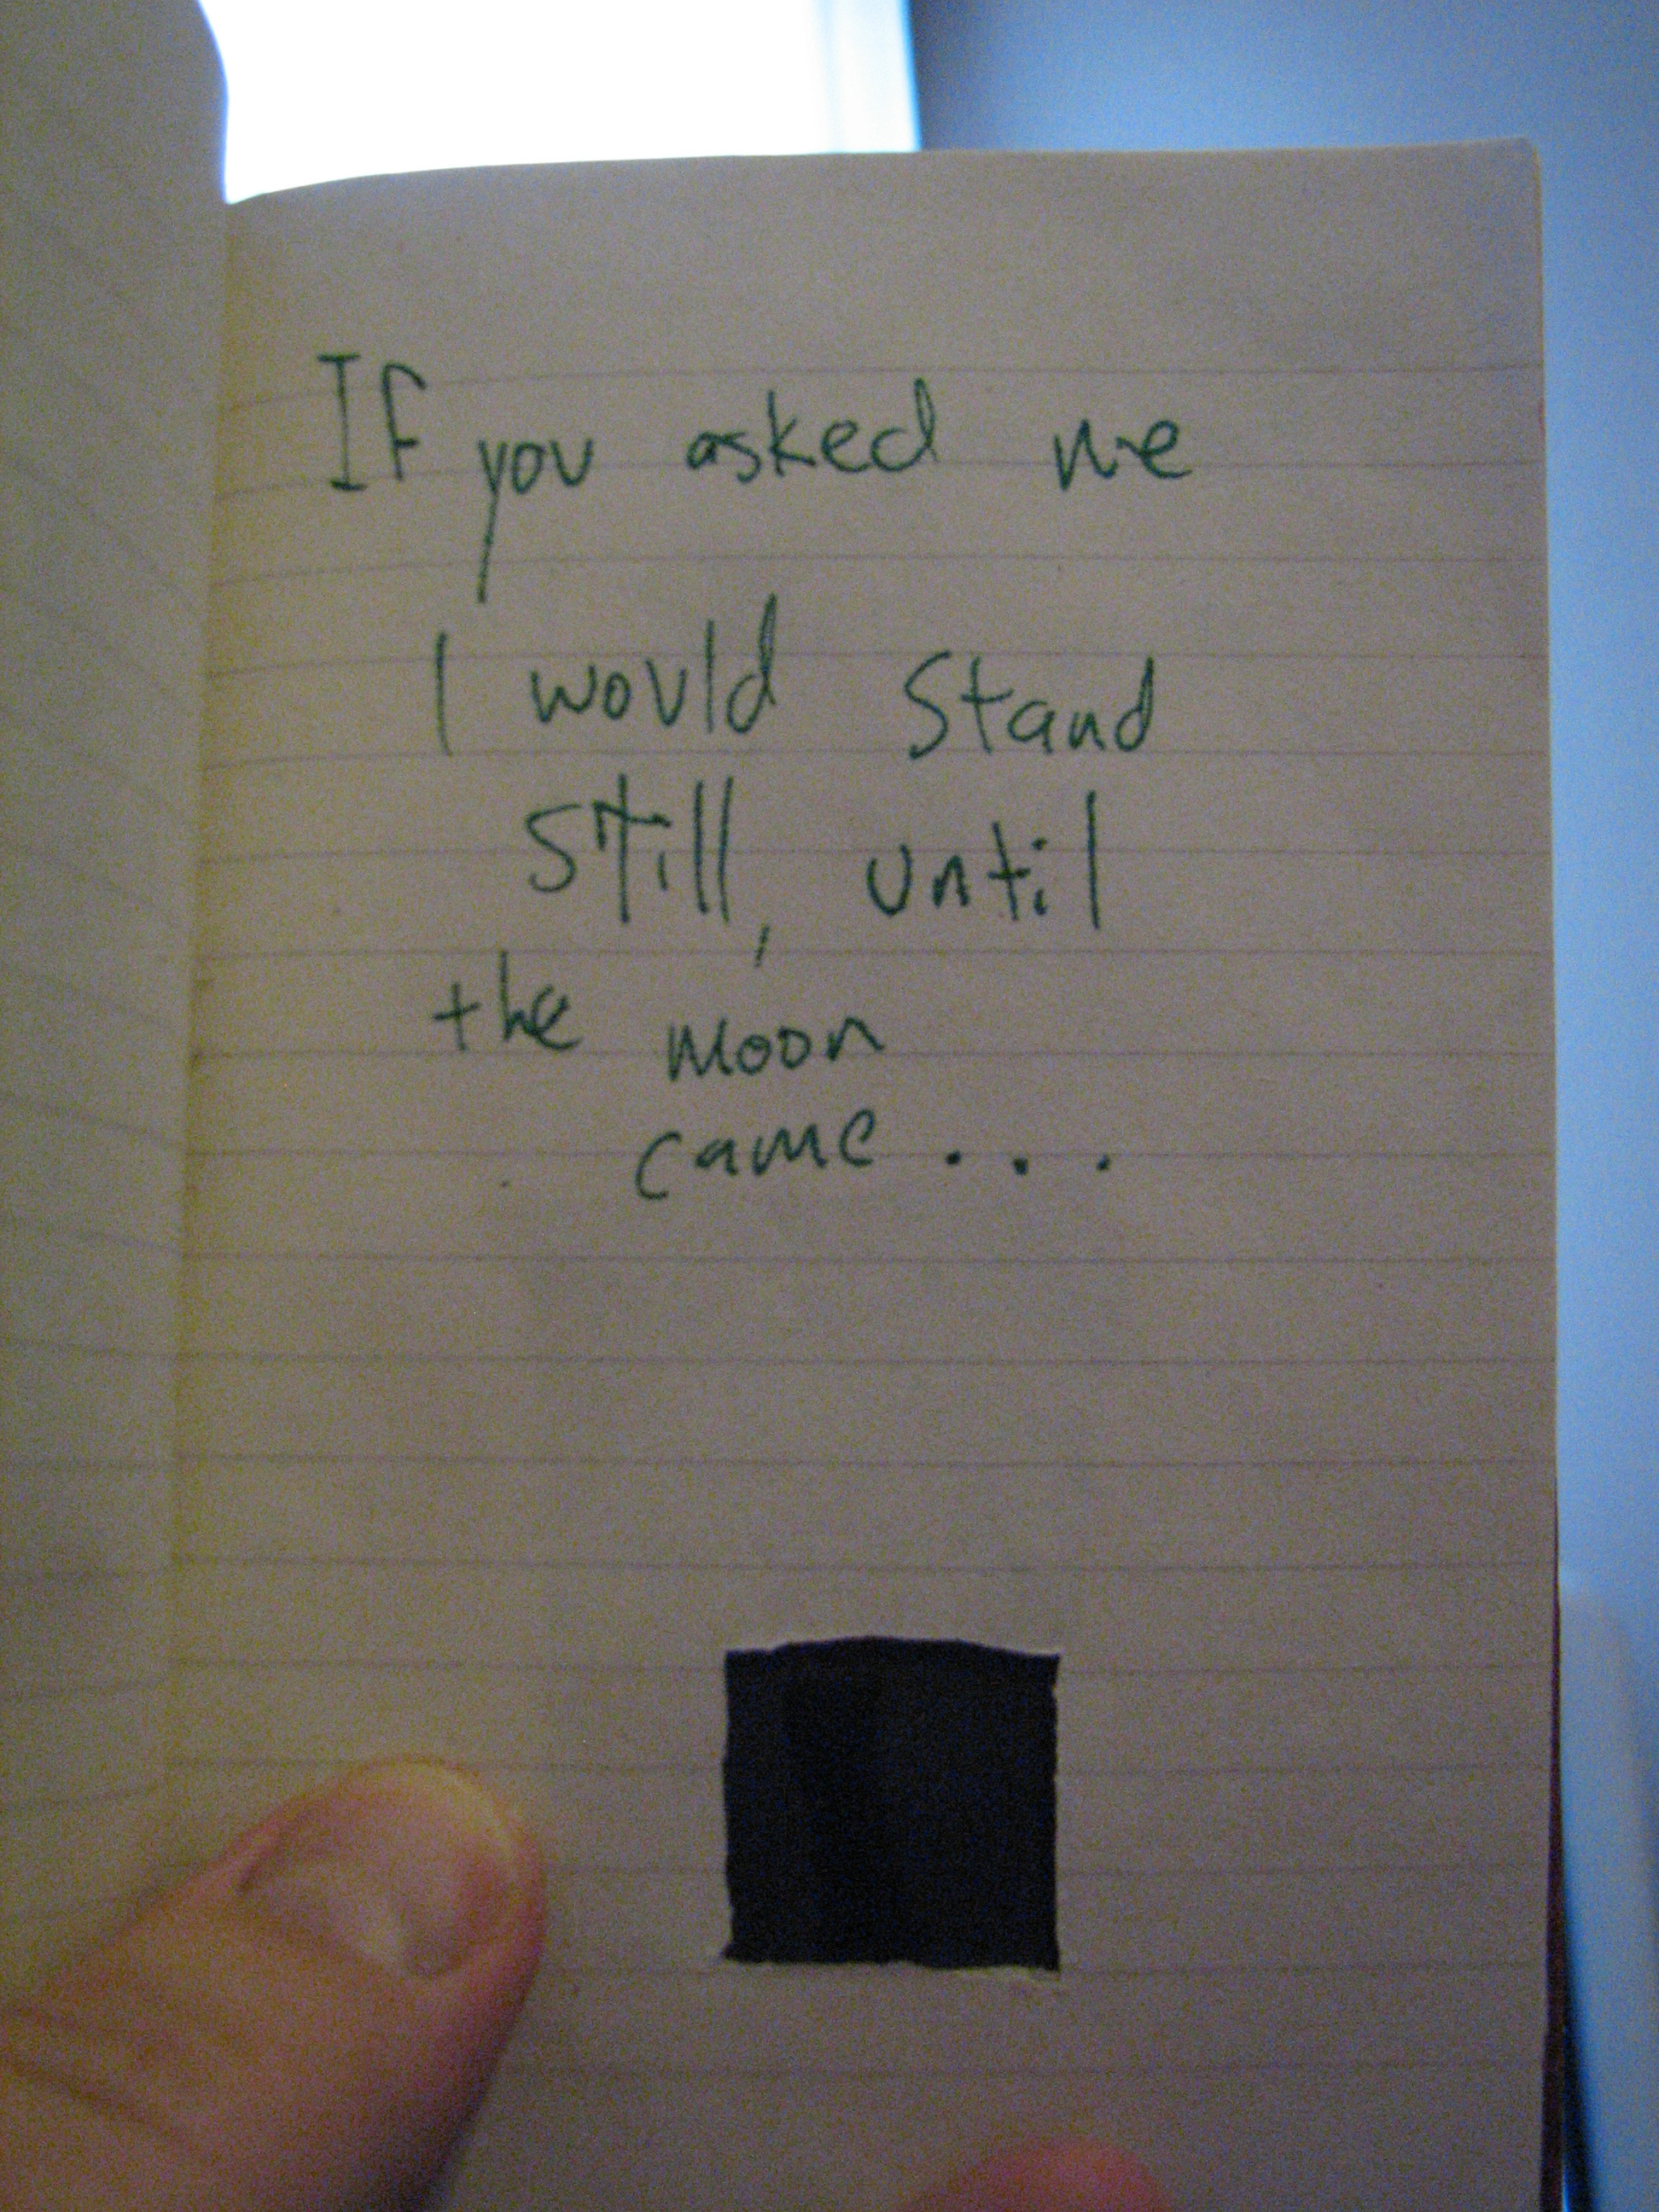 If you asked me
I would Stand
still, until
the moon
came...